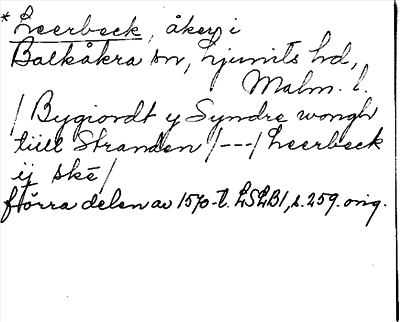 *Leerbeck, åker i
Balkåkra sn, Ljunits hd,
Malm. l.
/ Bygiordt y Syndre wongh
tiill Stranden /---/ Leerbeck
ij skē /
förra delen av 1570-t. LSLB1, s. 259. orig.